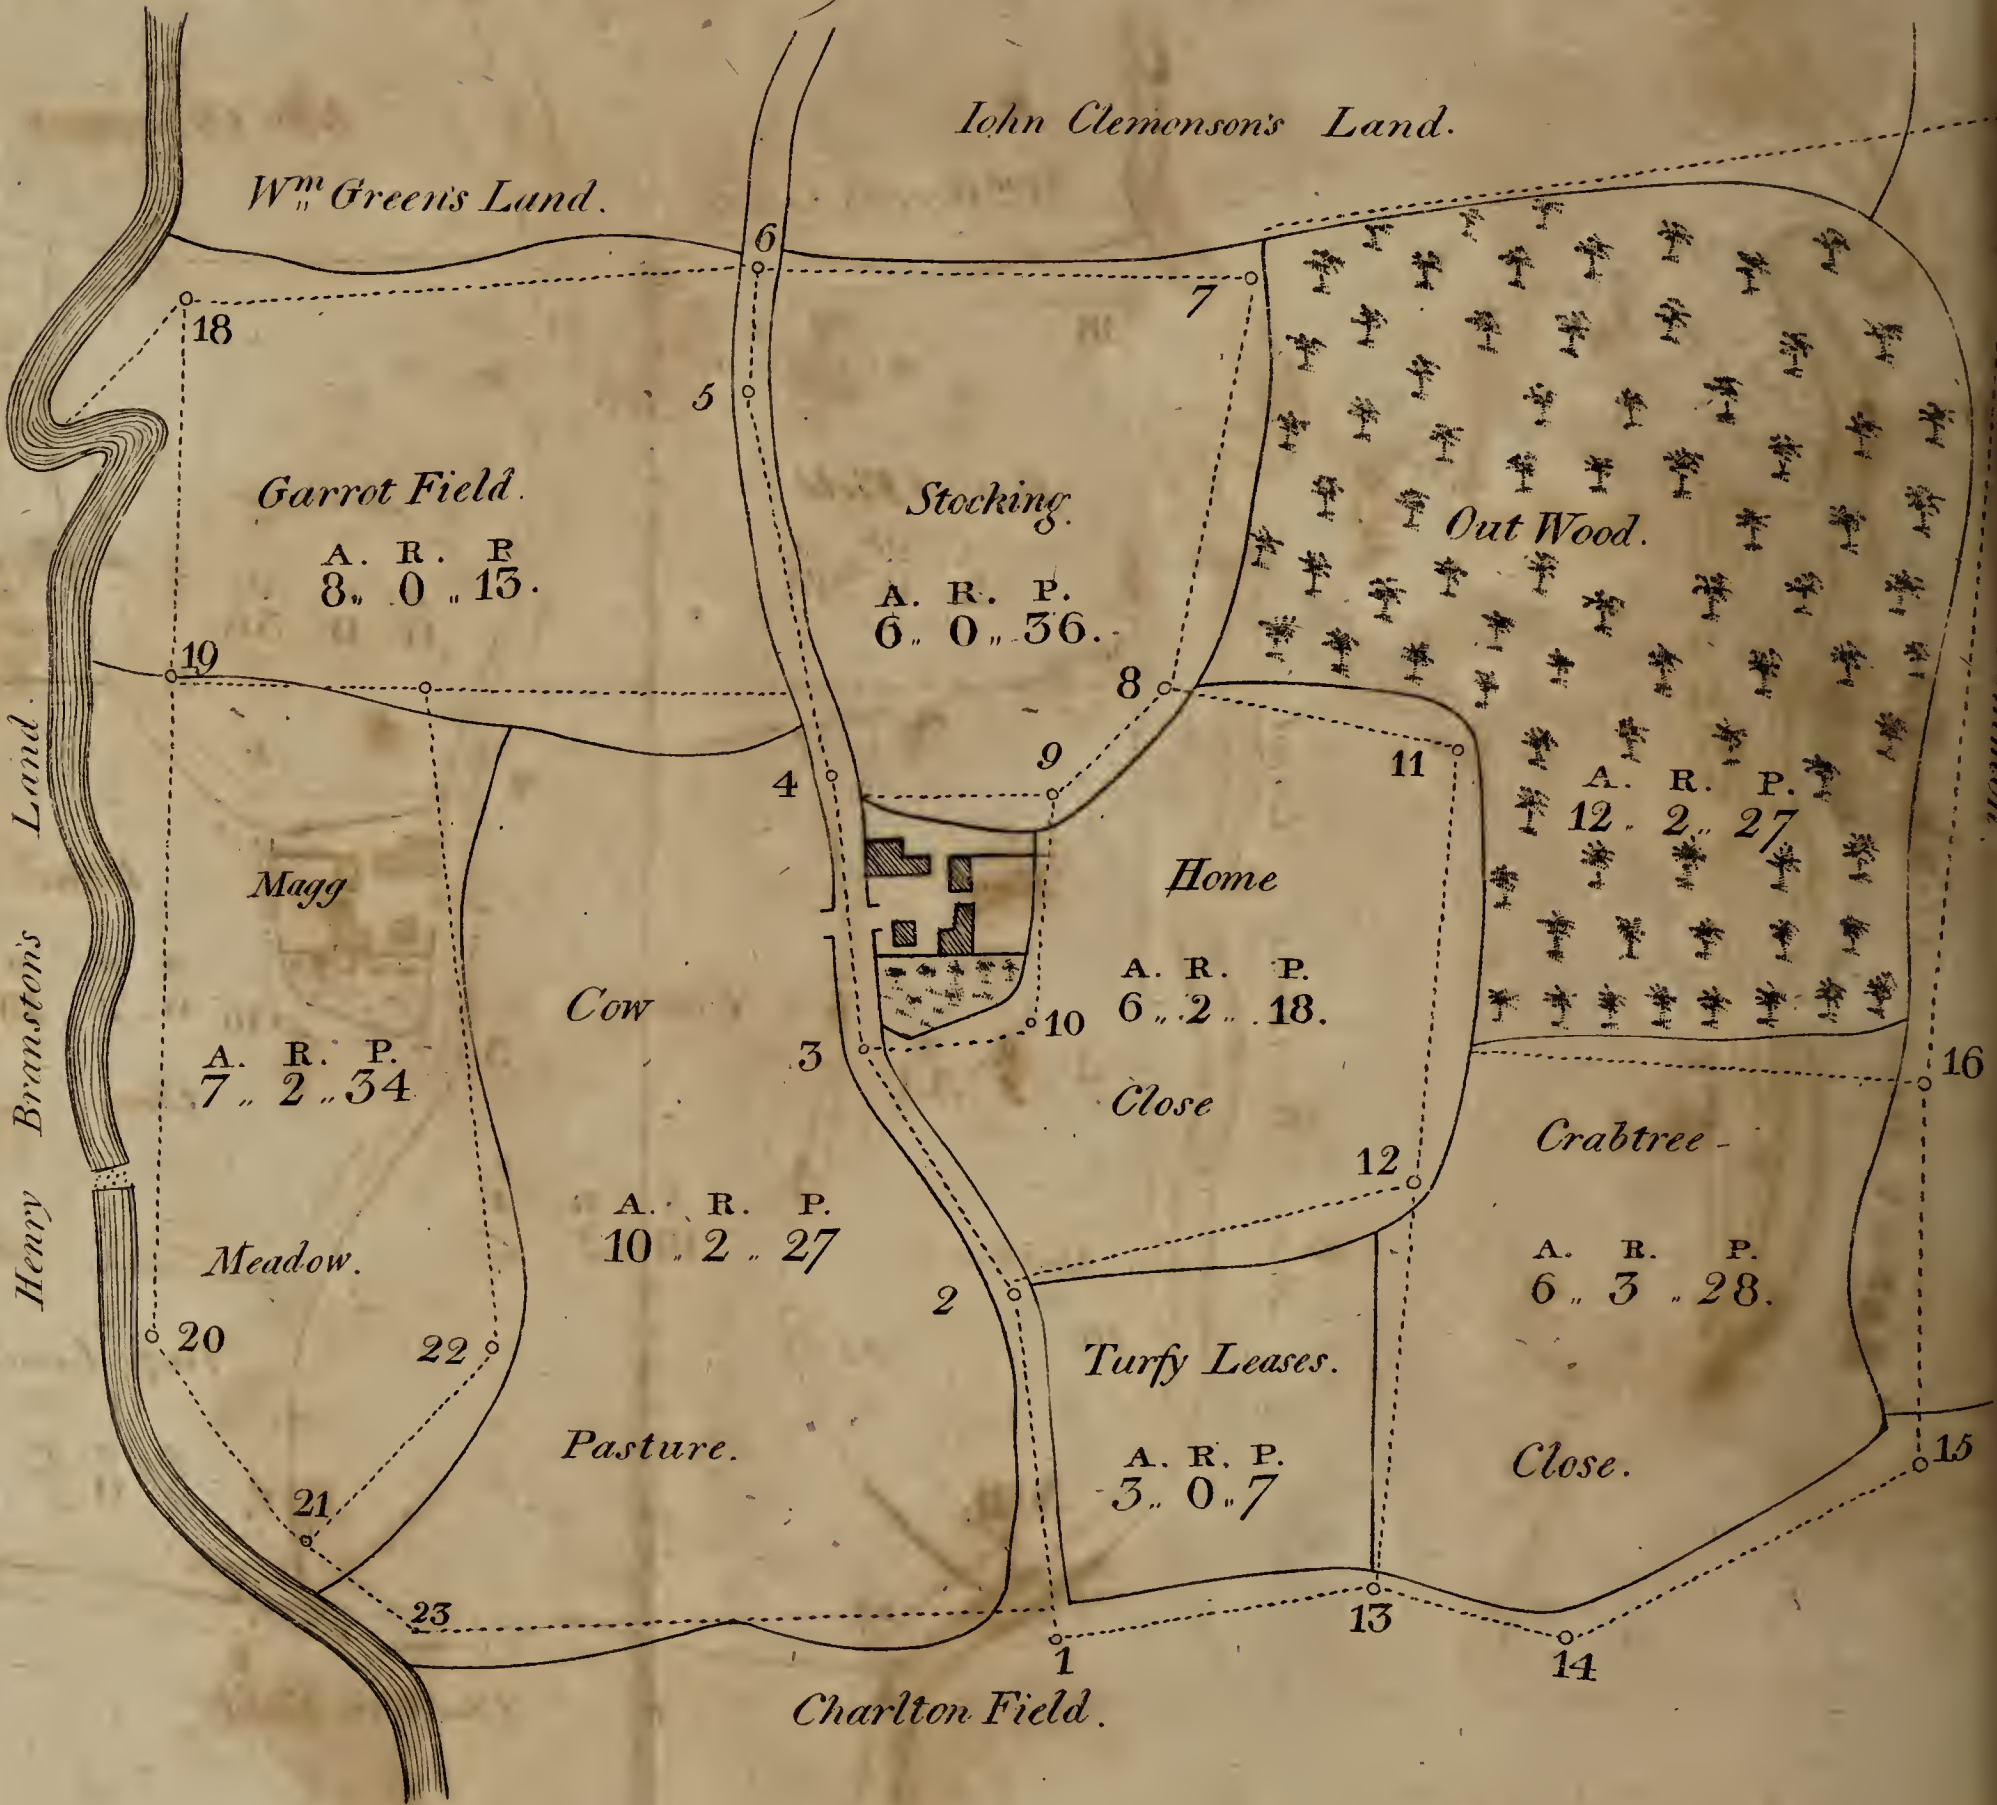 Iohn Clemenson's Land.
Wm Green's Land.
6
7
18
5
Garrot Field.
A. R. P.
8 " 0 " 13.
Stocking.
A. R. P.
6 " 0 " 36.
Out Wood.
A. R. P.
12 " 2 " 27
19
8
11
9
4
Henry Branston's Land.
Magg
A. R. P.
7 " 2 " 34
Meadow.
Cow
A. R. P.
10 " 2 " 27
Pasture.
Home
A. R. P.
6 " 2 " 18.
Close
10
3
16
12
Crabtree -
A. R. P.
6 " 3 " 28.
Close.
2
20
22
Turfy Leases.
A. R. P.
3 " 0 " 7
15
21
23
13
1
14
Charlton Field.